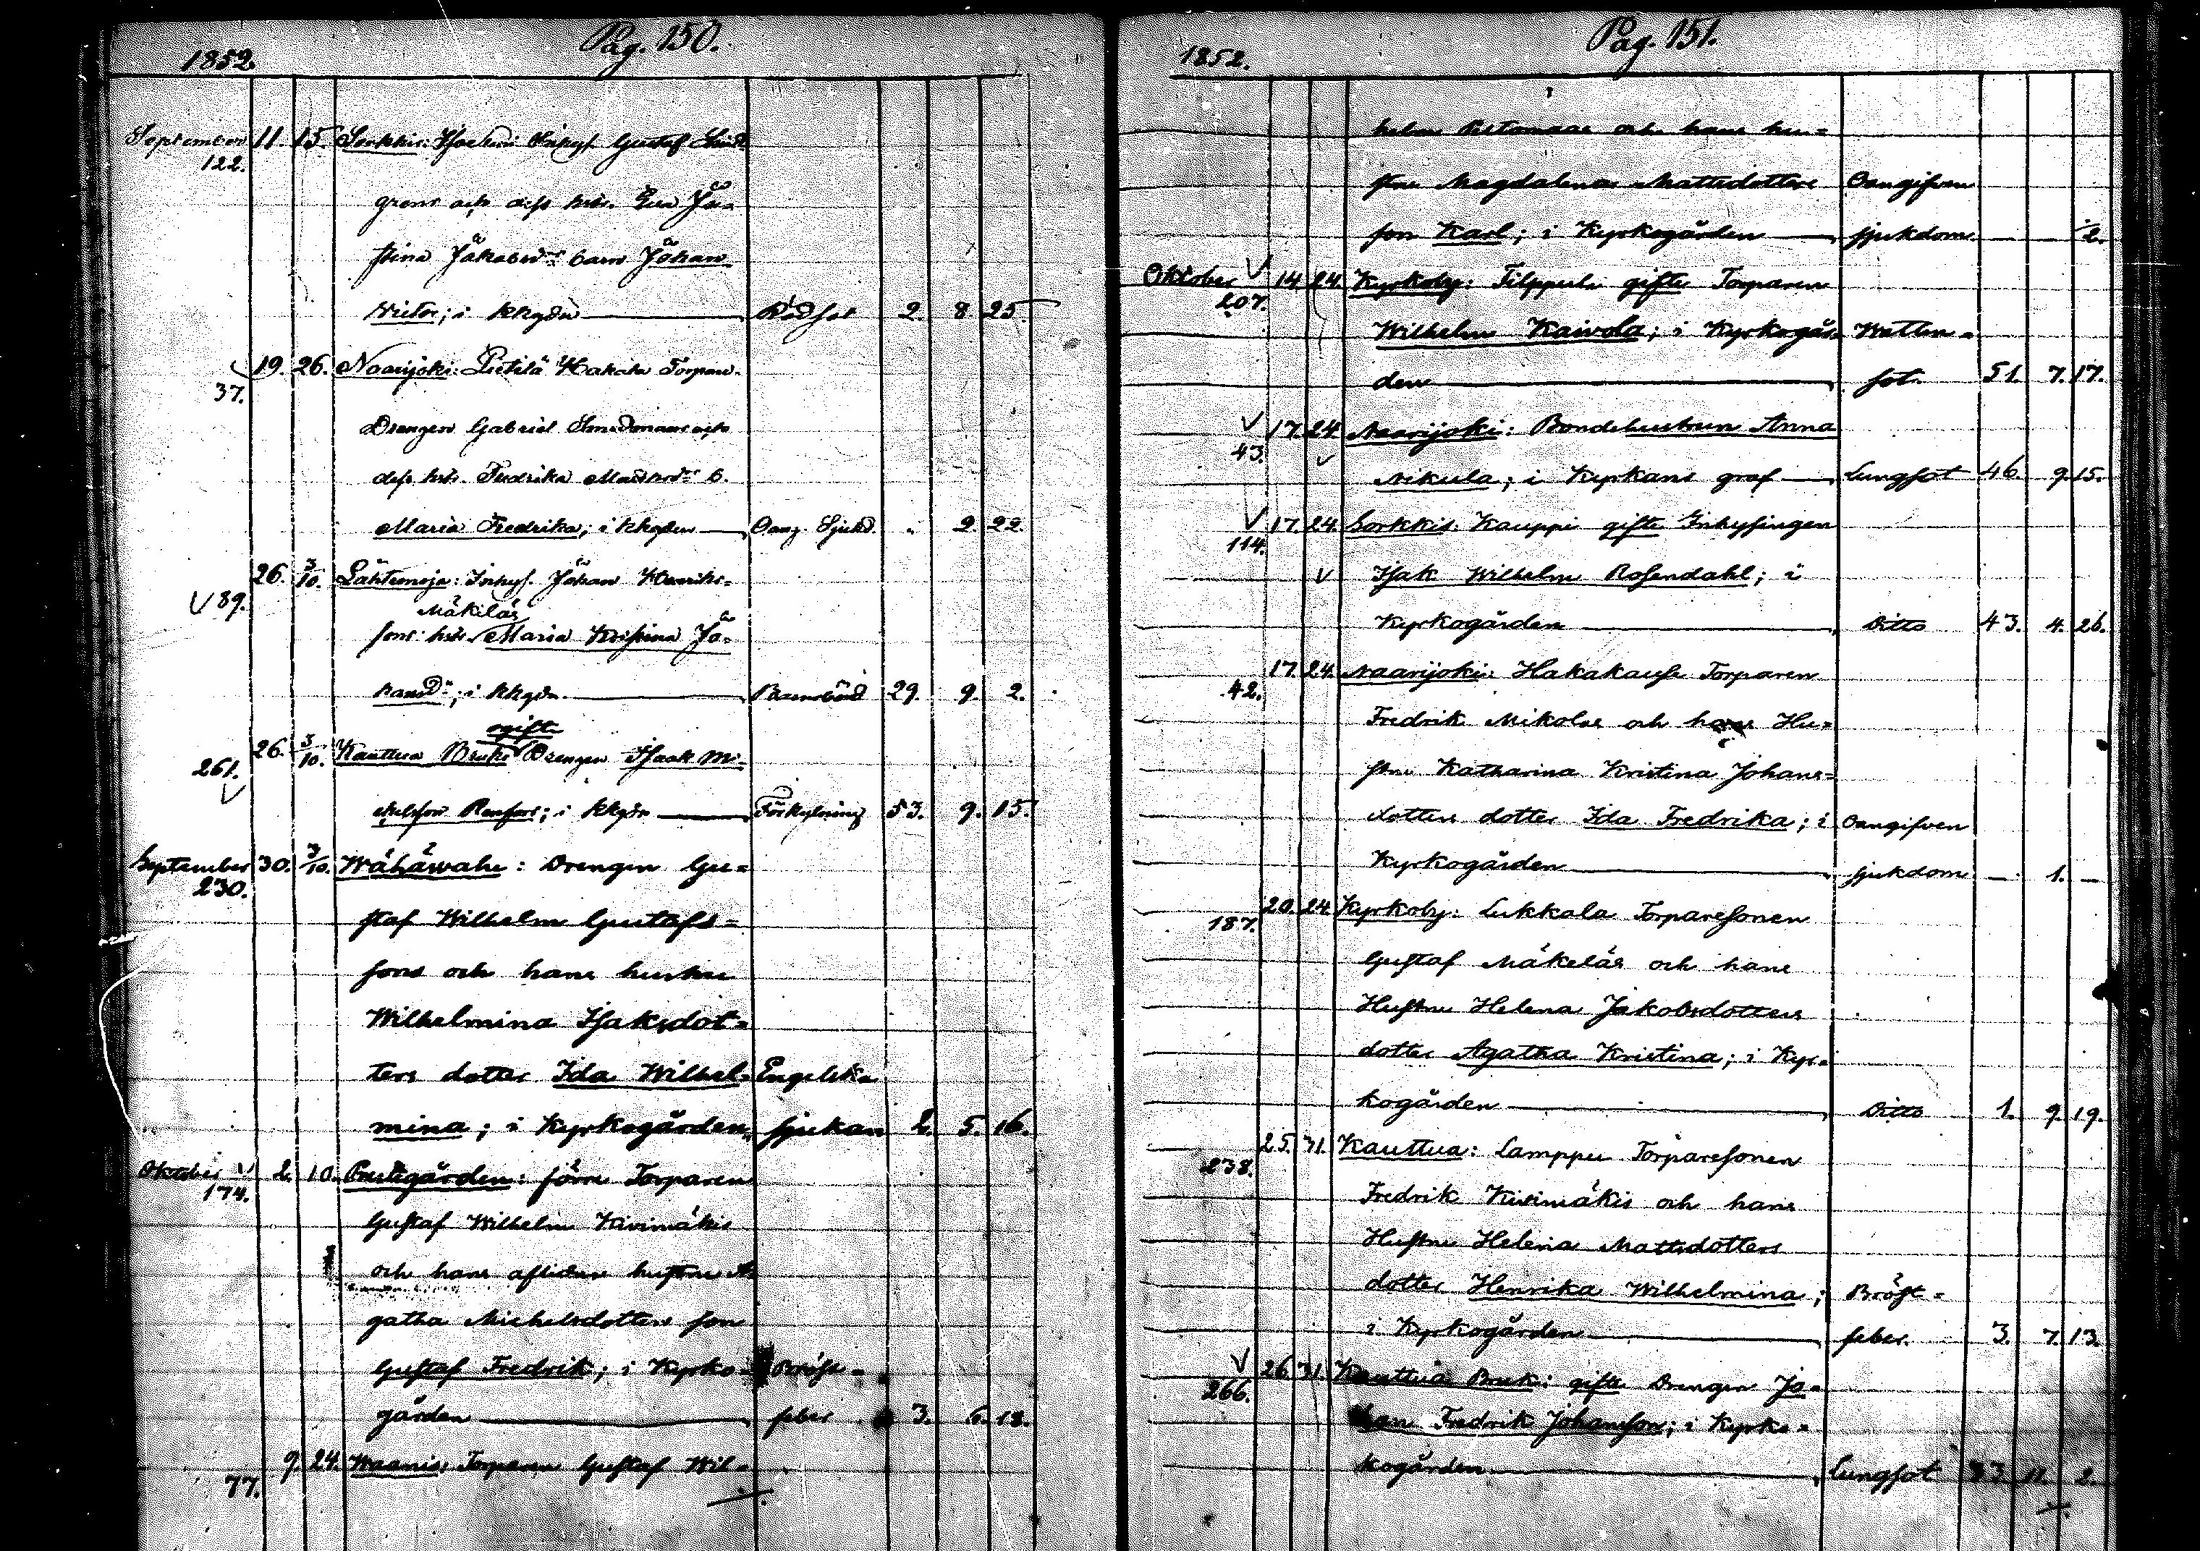 Pag. 150.
1852.
September 11. 15. Sorkkis: Isoseppä Inhys. Gustaf Lind-
122.
grens och dess hstr. Eva Ju-
stina Jakobsd:s barn Johan
Victor; i kkgdn Rödsot 2. 8 25.
19. 26. Naarijoki: Pietilä Hakala Torpare
37.
Drengen Gabriel Smedmans och
dess hstr. Fredrika Mattsd:s b.
Maria Fredrika; i kkgden Oang. Sjukd. „ 2 22.
26. 3/10. Lähteenoja: Inhys. Johan Henriks-
89.
Mäkeläs
sons hstr. Maria Kristina Jo-
hansd:r; i kkgdn. Barnsbörd 29. 9. 2.
ogifte
26. 3/10. Kauttua Bruk: Drengen Isaak Mi-
261.
chelsson Renfors; i kkgdn Förkylning 53. 9. 15.
September 30. 3/10. Wähäwahe: Drengen Gu-
230.
staf Wilhelm Gustafs-
sons och hans hustru
Wilhelmina Isaksdot-
ters dotter Ida Wilhel- Engelska
mina; i Kyrkogården sjukan 2. 5. 16.
Oktober 2. 10. Prestegården: förre Torparen
174.
Gustaf Wilhelm Kivimäkis
och hans aflidna hustru A-
gatha Michelsdotters son
Gustaf Fredrik; i Kyrko- Bröst-
gården feber 3. 6. 18.
9. 24. Waanis: Torparen Gustaf Wil-
77.
Pag. 151.
1852.
helm Ristomaas och hans hu-
stru Magdalena Mattsdotters Oangifven
son Karl; i Kyrkogården sjukdom ½
Oktober 14 24. Kyrkoby: Filppula gifte Torparen
207.
Wilhelm Kaivola; i Kyrkogår- Watten-
den sot. 51. 7. 17.
17. 24 Naarijoki: Bondehustrun Anna
43.
Nikula; i Kyrkans graf Lungsot 46. 9. 15.
17. 24 Sorkkis: Kauppi gifte Inhysingen
114.
Isak Wilhelm Rosendahl; i
Kyrkogården Ditto 43. 4. 26.
17. 24. Naarijoki: Hakakauste Torparen
42.
Fredrik Mikolas och hans Hu-
stru Katharina Kristina Johans-
dotters dotter Ida Fredrika; i Oangifven
Kyrkogården sjukdom — 1. —
20. 24 Kyrkoby: Lukkala Torparesonen
187.
Gustaf Mäkeläs och hans
Hustru Helena Jakobsdotters
dotter Agatha Kristina; i Kyr-
kogården Ditto 1. 9. 19.
25. 31. Kauttua: Lamppu Torparesonen
238.
Fredrik Kivimäkis och hans
Hustru Helena Mattsdotters
dotter Henrika Wilhelmina; Bröst-
i Kyrkogården feber. 3. 7. 13.
26 31. Kauttua Bruk: gifte Drengen Jo-
266.
han Fredrik Johansson; i Kyrko-
kogården Lungsot 33. 11. 2.